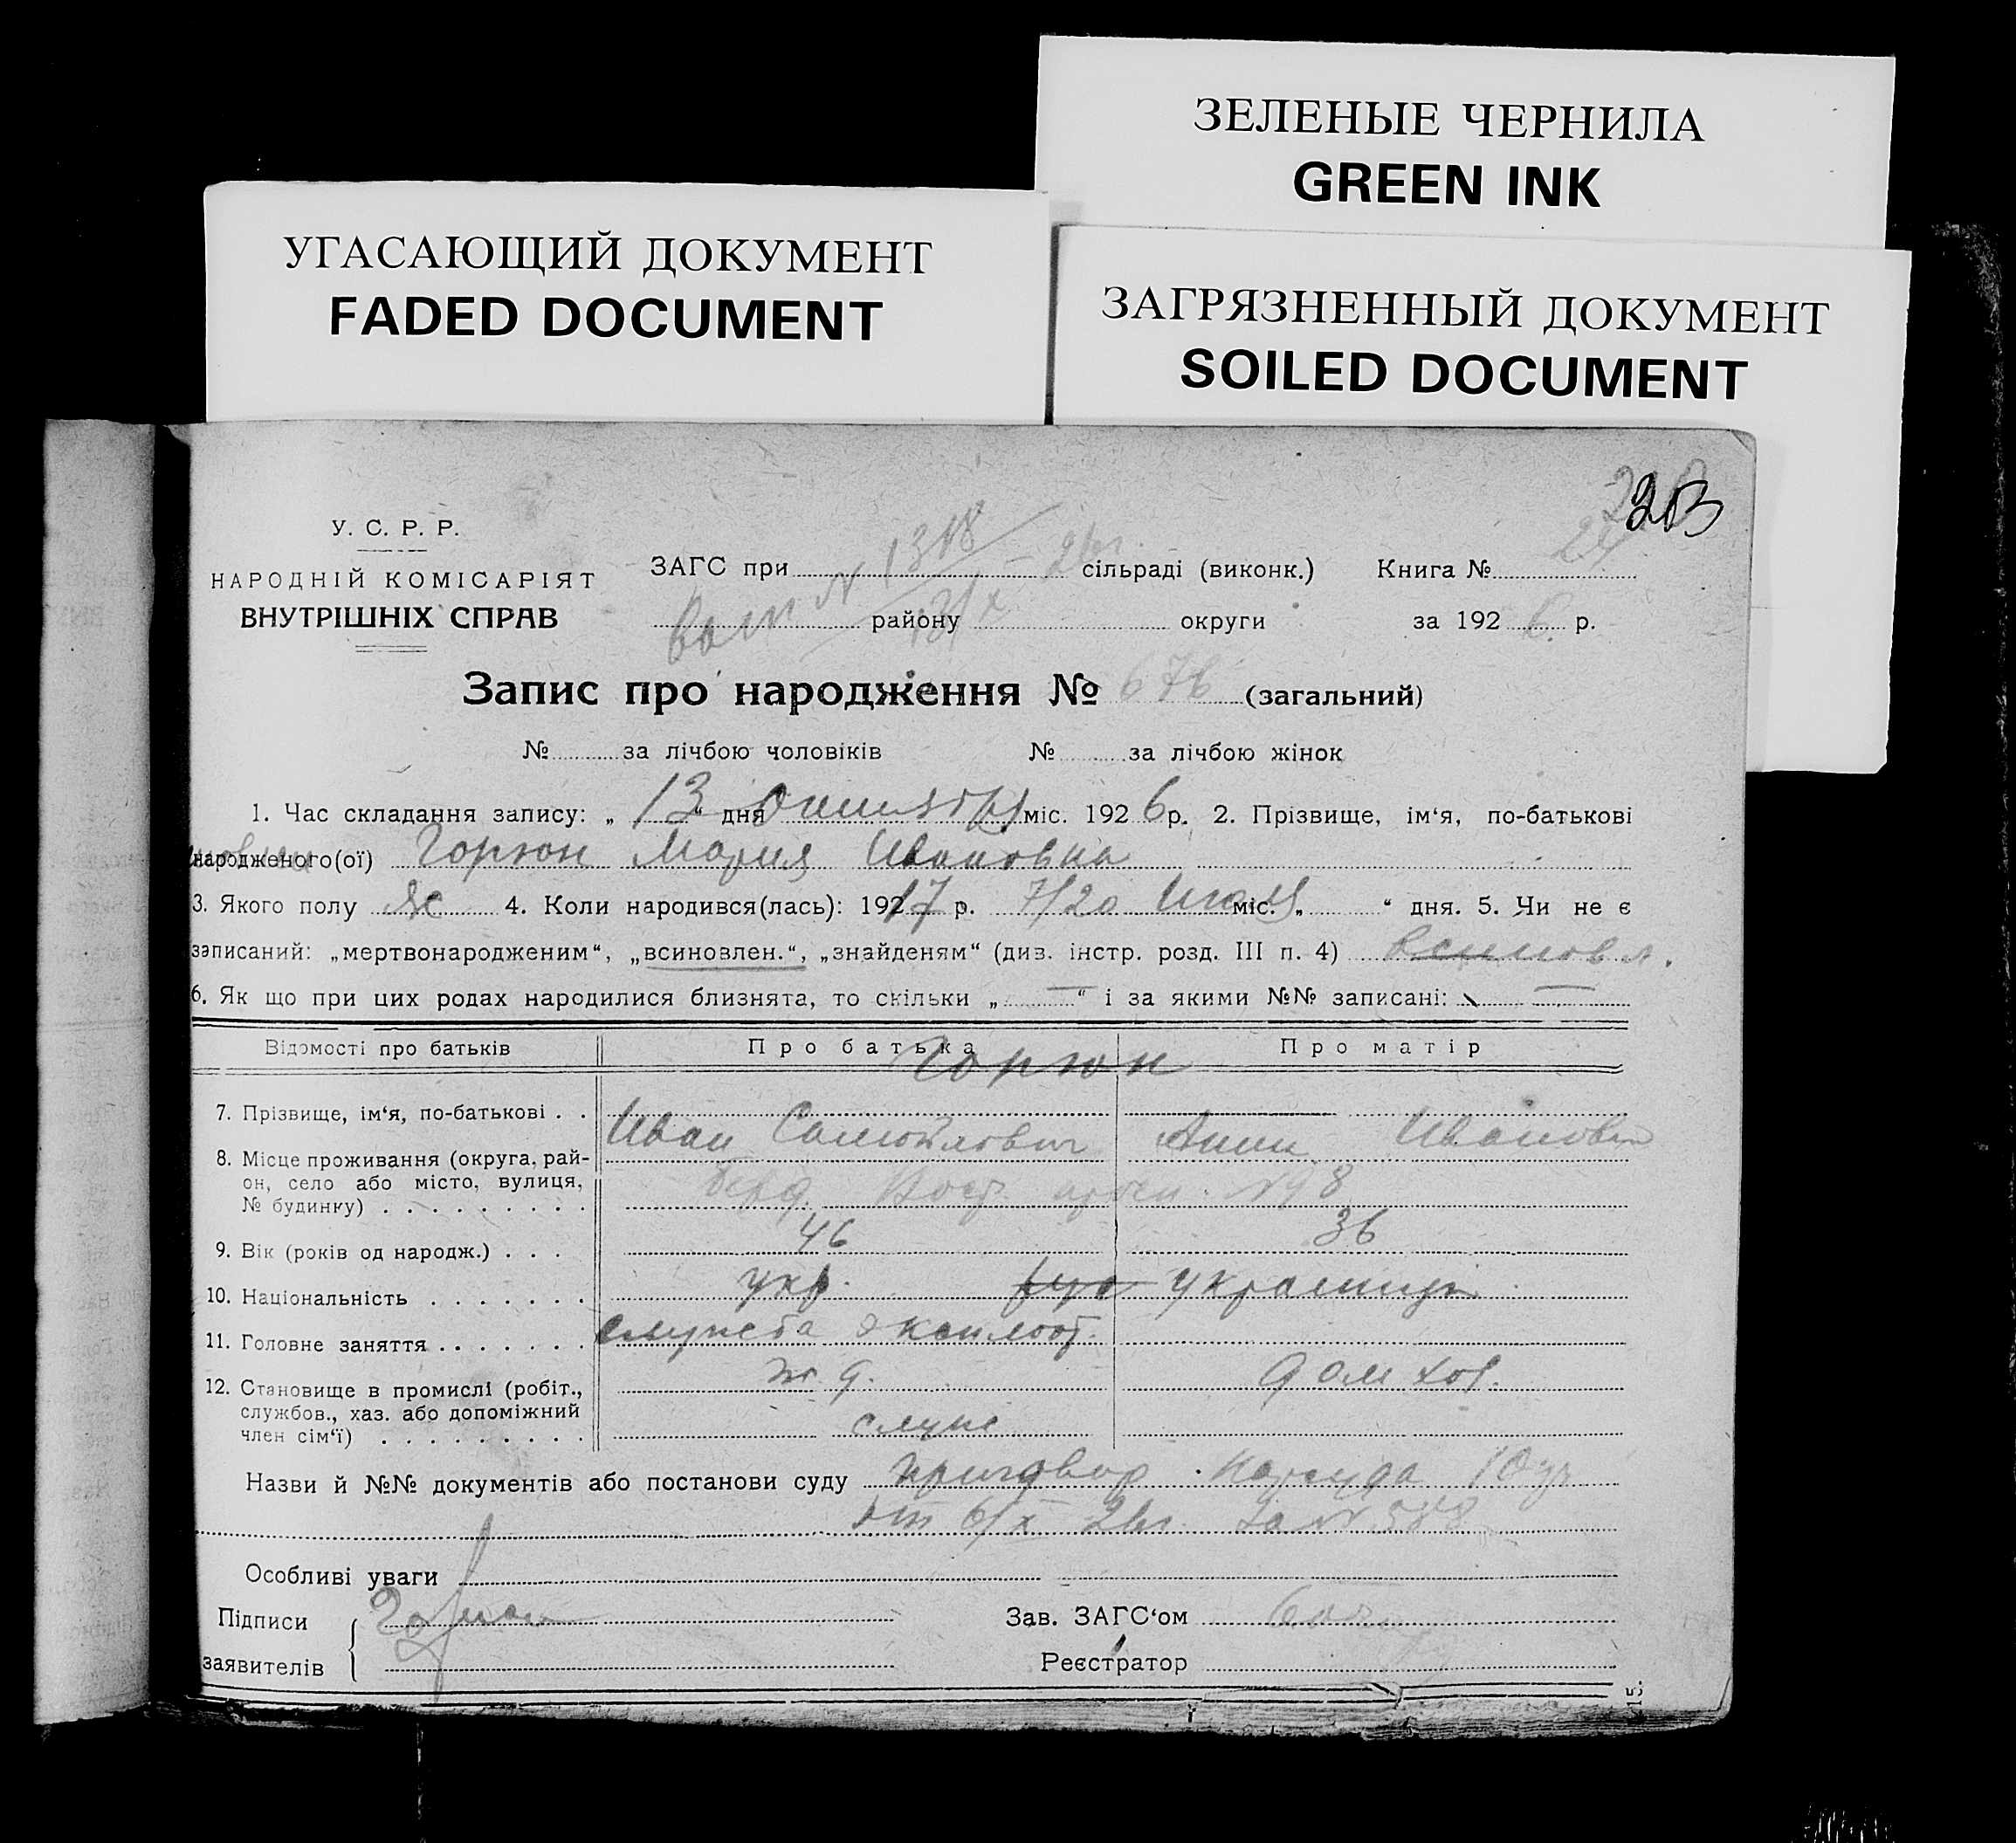 ЗЕЛЕНЫЕ ЧЕРНИЛА
GREEN INK
УГАСАЮЩИЙ ДОКУМЕНТ
FADED DOCUMENT
ЗАГРЯЗНЕННЫЙ ДОКУМЕНТ
SOILED DOCUMENT
У. С. Р. Р.
НАРОДНІЙ КОМІСАРІЯТ
ВНУТРІШНІХ СПРАВ
ЗАГС при сільраді (виконк.) Книга № 24
району округи за 192 6. р.
Запис про народження № 676 (загальний)
№ за лічбою чоловіків № за лічбою жінок
1. Час складання запису: „ 13 “ дня Октября міс. 192 6 р. 2. Прізвище, ім‘я, по-батькові
народженого(ої) Горюн Мария Ивановна
3. Якого полу ж 4. Коли народився(лась): 192 17 р. 7/20 Июля міс. „ “ дня. 5. Чи не є
записаний: „мертвонародженим“, „всиновлен.“, „знайденям“ (див. інстр. розд. III п. 4) всиновл.
6. Як що при цих родах народилися близнята, то скільки „ — “ і за якими №№ записані: —
Відомості про батьків Про батька Про матір
Горюн
7. Прізвище, ім‘я, по-батькові . . Иван Самойлович Анна Ивановн
8. Місце проживання (округа, рай-
он, село або місто, вулиця,
№ будинку) №98
9. Вік (років од народж.) . . . 46 36
10. Національність укр. рус украинци
11. Головне заняття служба эксплоат.
ж. д. дом хоз.
12. Становище в промислі (робіт.,
службов., хаз. або допоміжний
член сім‘ї) служ
Назви й №№ документів або постанови суду приговор Нарсуда 10 уч
от 6/X 26г. за № 588
Особливі уваги
Підписи Горюн Зав. ЗАГС‘ом
заявителів Реєстратор